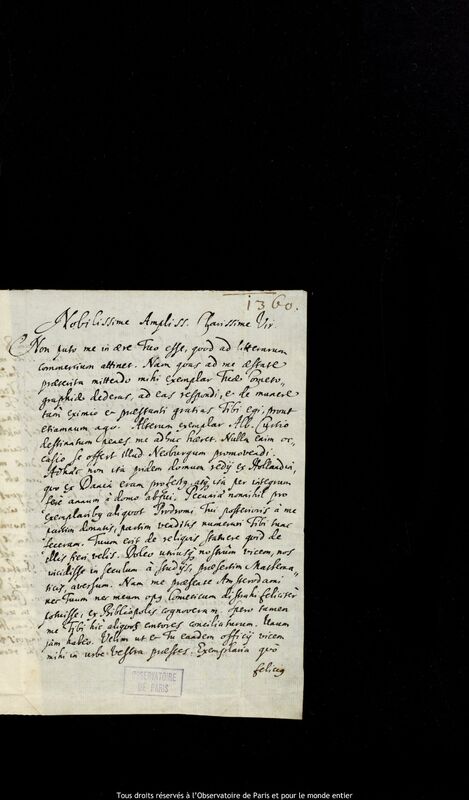 1360.
Nobilissime Ampliss. Clarissime Vir
Non puto me in ære tuo esse, quod ad litterarum
commercium attinet. Nam quas ad me æstate
præterita mittendo mihi exemplar tuæ Cometo-
graphiæ dederas, ad eas respondi, et de munere
tam eximio et præstanti gratias tibi egi, prout
etiamnum ago. Alterum exemplar Alb. Curtio
destinatum penes me adhuc hæret. Nulla enim oc-
casio se offert illud Neoburgum promovendi.
Adhæc non ita pridem domum redij ex Hollandia,
quo ex Dania eram profectus, atque ita per integrum
fere annum à domo abfui. Pecuniæ nonnihil pro
exemplaribus aliquot Prodromi Tui posterioris à me
partim donatis, partim venditis numerari Tibi tunc
feceram. Tuum erit de reliquis statuere quid de
illis fieri velis. Doleo utriusque nostrum vicem, nos
incidisse in seculum à studijs, præsertim Mathema-
ticis, aversum. Nam me præsente Amsterodami
nec Tuum nec meum opus Cometicum distrahi feliciter
potuisse, ex Bibliopolis cognoveram. Spero tamen
me Tibi hic aliquos emtores conciliaturum. Unum
jam habeo. Velim ut et Tu eandem officij vicem
mihi in urbe vestra præstes. Exemplaria quo
felicius
OBSERVATOIRE
DE PARIS
Tous droits réservés à l'Observatoire de Paris et pour le monde entier